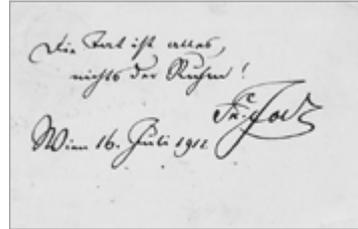 Die Tat ist alles,
nichts der Ruhm!
Fr. Jodl
Wien 16. Juli 1912